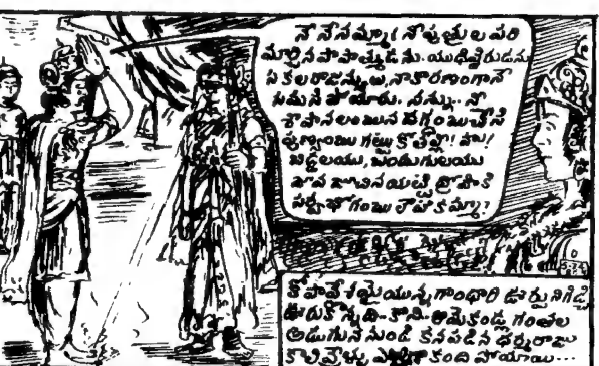 నే నేనమ్మా! నీ పుత్రుల పరి
మార్చిన పాపాత్ముడను. యుధిష్ఠిరుడను
సకల రాజన్యులు, నా కారణంగానే
సమసి పోయారు. నన్ను.. నీ
శాపానలంబున దగ్ధంబుచేసి
పుణ్యంబు గట్టు కోతల్లీ! హు!
బిడ్డలయు, బంధుగులయు
చూచినయట్టి ద్రోహికి
సర్వభోగంబు లేహకమ్మా?
కోపావేశమైయున్న గాంధారి ఊర్పు నిగిడ్చి
ఊరుకొన్నది.. కాని.. ఆమెకండ్ల గంతల
అడుగున నుండి కనపడిన ధర్మరాజు
కాలి వేళ్ళు ఎర్రగా కంది పోయాయి...